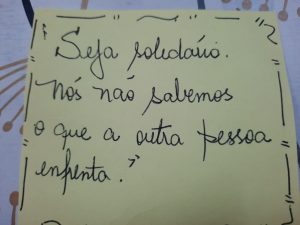 "Seja solidário.
Nós não sabemos
o que a outra pessoa
enfrenta."